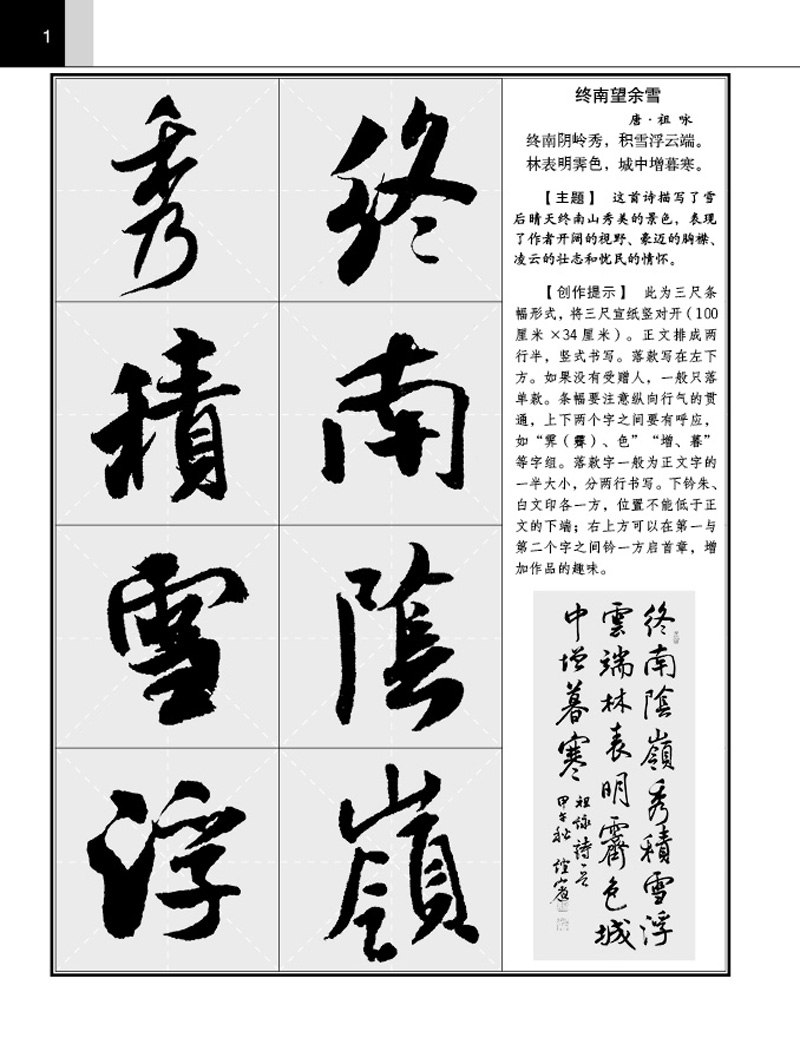 1
终南望余雪
唐·祖咏
终南阴岭秀，积雪浮云端。
林表明霁色，城中增暮寒。
【主题】 这首诗描写了雪
后晴天终南山秀美的景色，表现
了作者开阔的视野、豪迈的胸襟、
凌云的壮志和忧民的情怀。
【创作提示】 此为三尺条
幅形式，将三尺宣纸竖对开（100
厘米×34厘米）。正文排成两
行半，竖式书写。落款写在左下
方。如果没有受赠人，一般只落
单款。条幅要注意纵向行气的贯
通，上下两个字之间要有呼应，
如“霁（霽）、色”“增、暮”
等字组。落款字一般为正文字的
一半大小，分两行书写。下钤朱、
白文印各一方，位置不能低于正
文的下端；右上方可以在第一与
第二个字之间钤一方启首章，增
加作品的趣味。
終南陰嶺
秀積雪浮
終南陰嶺秀積雪浮
雲端林表明霽色城
中增暮寒
祖咏詩一首
甲午秋